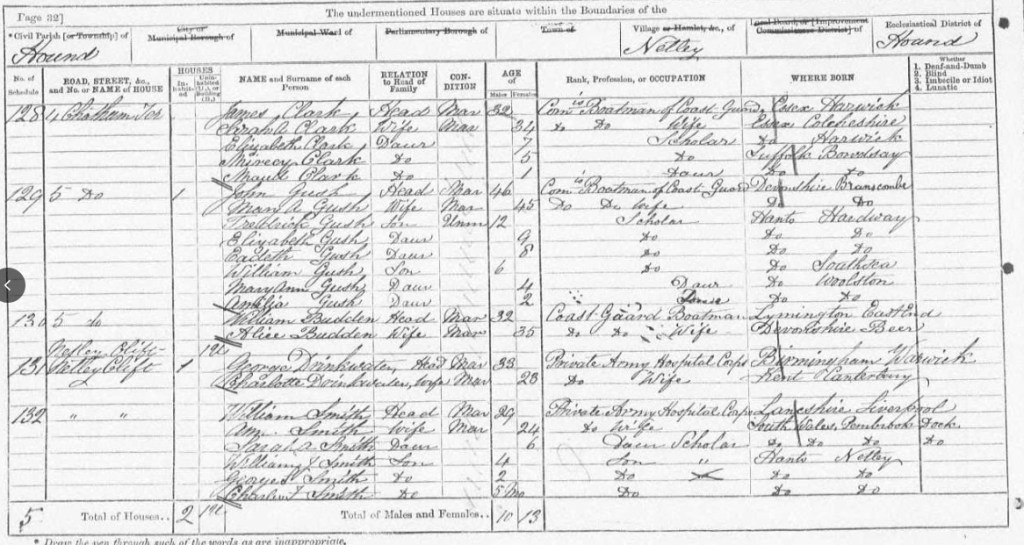 Page 32] The undermentioned Houses are situate within the Boundaries of the
* Civil Parish [or Township] of Hound | City or Municipal Borough of | Municipal Ward of | Parliamentary Borough of | Town of | Village or Hamlet, &c., of Netley | Local Board, or [Improvement Commissioners District] of | Ecclesiastical District of Hound
No. of Schedule | ROAD, STREET, &c., and No. or NAME of HOUSE | HOUSES In-habited Unin-habited (U.), or Building (B.) | NAME and Surname of each Person | RELATION to Head of Family | CON-DITION | AGE of Males Females | Rank, Profession, or OCCUPATION | WHERE BORN | Whether 1. Deaf-and-Dumb 2. Blind 3. Imbecile or Idiot 4. Lunatic
128 4 Chatham Ter James Clark Head Mar 32 Comd Boatman of Coast Guard Essex Harwick
Sarah A Clark Wife Mar 34 Do Do Wife Essex Colcheshire
Elizabeth Clark Daur 7 Scholar Do Harwick
Clark Do 5 Do Suffolk
Maud Clark Do 1 Daur Do Do
129 5 Do 1 John Gush Head Mar 46 Comd Boatman of Coast Guard Devonshire Branscombe
Mary A Gush Wife Mar 45 Do Do Wife Do Do
Fredrick Gush Son Unm 12 Scholar Hants Hardway
Elizabeth Gush Daur 9 Do Do Do
Gush Daur 8 Do Do Do
William Gush Son 6 Do Do Southsea
Mary Ann Gush Daur 4 Daur Do Woolston
Amilia Gush Daur 2 Do Do
130 5 Do William Budden Head Mar 32 Coast Gaard Boatman Lymington East End
Alice Budden Wife Mar 35 Do Do Wife Devonshire Beer
Netley Clift 1U
131 Netley Clift 1 George Drinkwater Head Mar 33 Private Army Hospital Corps Birmingham Warwick
Charlotte Drinkwater Wife Mar 23 Do Wife Kent Canterbury
132 " " William Smith Head Mar 29 Private Army Hospital Corps Lancshire Liverpool
Ann Smith Wife Mar 24 Do Wife South Wales Pembrook Dock
Sarah A Smith Daur 6 Daur Scholar Do Do Do
William J Smith Son 4 Son " Hants Netley
George Smith Do 2 Do Do Do
Charles Smith Do 5 Mo Do Do Do
5 Total of Houses.. 2 1U Total of Males and Females.. 10 13
* Draw the pen through such of the words as are inappropriate.